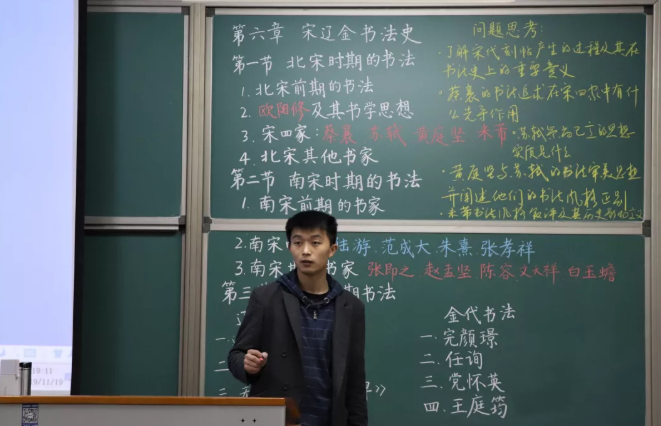 第六章 宋辽金书法史
第一节 北宋时期的书法
1.北宋前期的书法
2.欧阳修及其书学思想
3.宋四家：蔡襄 苏轼 黄庭坚 米芾
4.北宋其他书家
第二节 南宋时期的书法
1.南宋前期的书家
问题思考：
·了解宋代刻帖产生的过程及其在
书法史上的重要意义
·蔡襄的书法追求在宋四家中有什
么先导作用
·苏轼
的思想
实质是什么
·黄庭坚与苏轼的书法审美思想
并阐述他们的书法风格区别
·米芾书法风格
2.南宋
陆游.范成大.朱熹.张孝祥
3.南宋
书家 张即之 赵孟坚 陈容 文天祥 白玉蟾
第三
期书法
金代书法
一.完颜璟
二.任询
三.党怀英
四.王庭筠
19:11
19/11/19